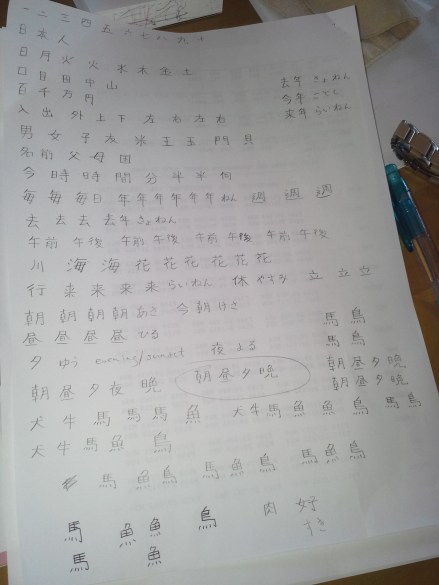 一二三四五六七八九十
日本人
日月火火水木金土
口目田中山
百千万円
去年 きょねん
今年 ことし
来年 らいねん
入出外上下左右左右
男女子友氺王玉門貝
名前父母国
今時時間分半半何
毎毎毎日年年年年年ねん週週週
去去去去年きょねん
午前 午後 午前 午後 午前 午後 午前 午後
川海海花花花花花花
行来来来来らいねん 休やすみ 立立立
朝朝朝朝あさ 今朝けさ
昼昼昼昼ひる
馬鳥
馬鳥
夕ゆう evening/sunset 夜よる
朝昼夕夜晩 朝昼夕晩
朝昼夕晩
朝昼夕晩
犬牛馬馬馬魚 犬牛馬魚魚鳥馬鳥
犬牛馬魚 鳥
馬魚鳥 馬魚鳥 馬魚鳥
馬 魚魚 鳥 肉 好
馬 魚 すき